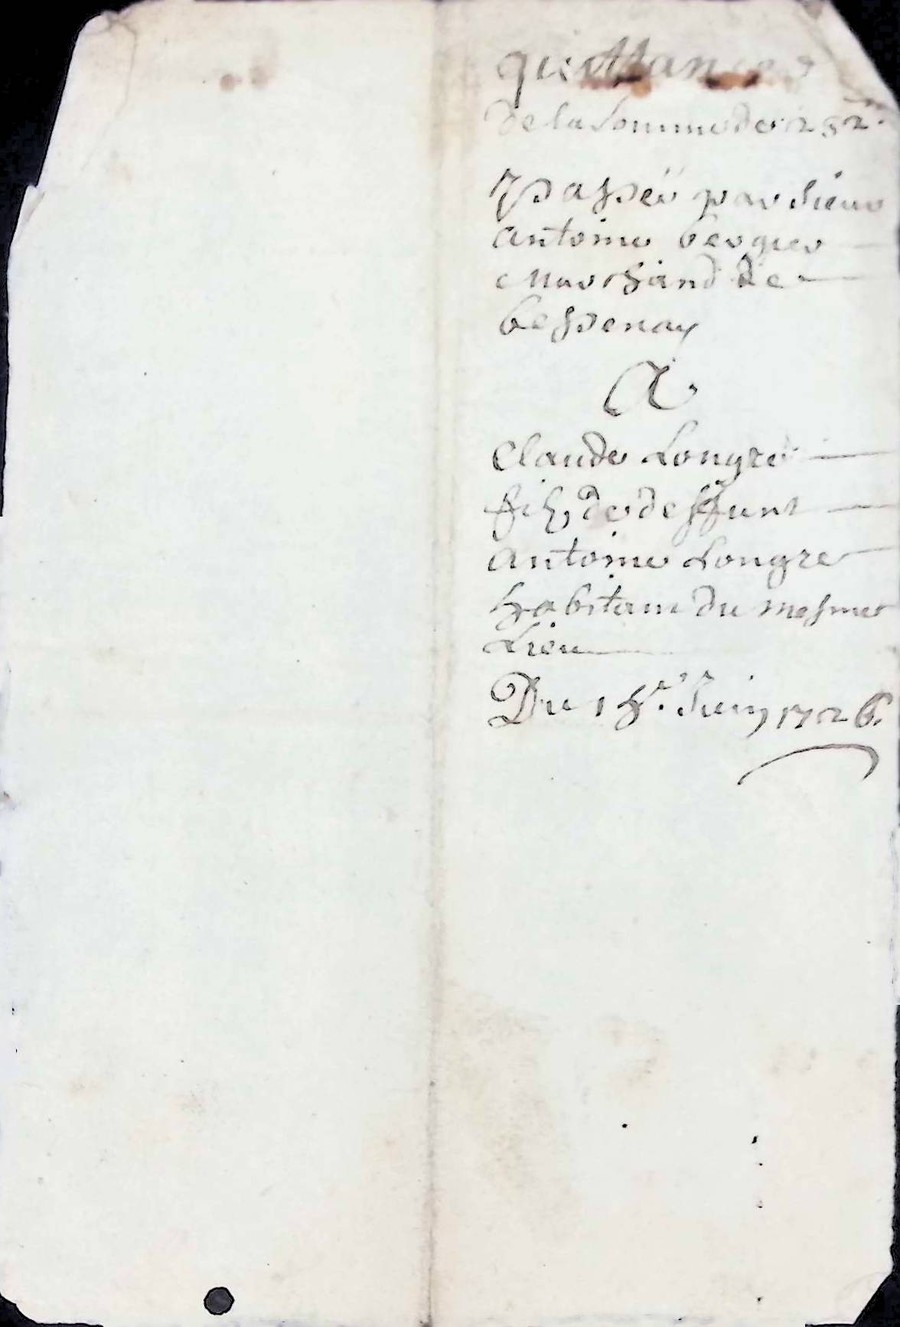 quittance
de la somme de 232#
passéé par sieur
antoine berger
marchand de
bessenay
A
Claude Longre
filz de deffunt
antoine Longre
habitant du mesme
Lieu
Du 18e. Juin 1726.